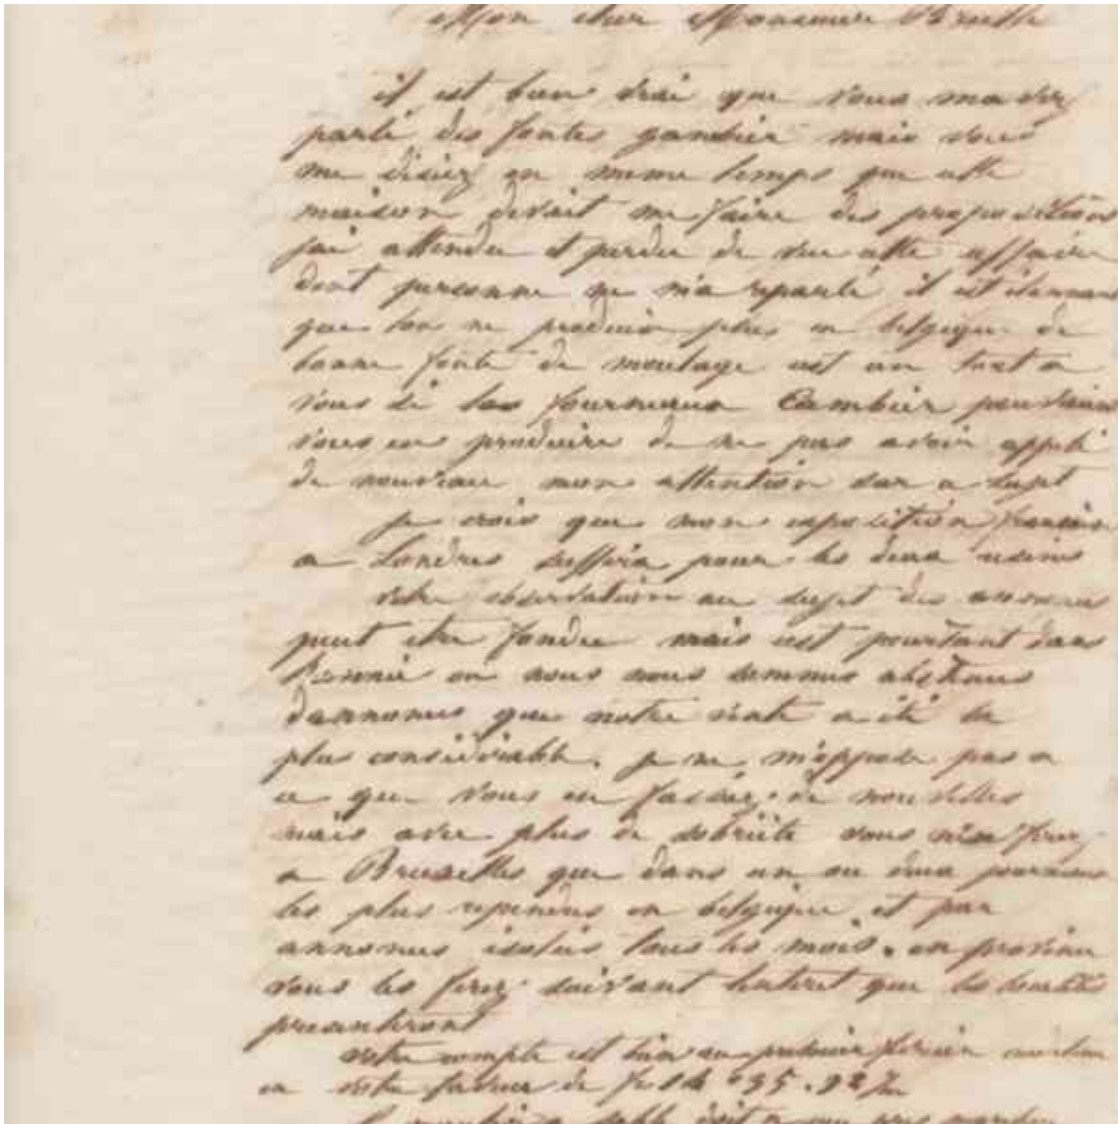 Mon cher Monsieur
il est bien vrai que vous mavez
parlé des fontes gambier mais vous
me disiez en meme temps que cette
maison devait me faire des proposition
jai attendu et perdu de vue cette affaire
dont personne ne m'a reparlé, il est étonnant
que lon ne produise plus en belgique de
bonne fonte de moulage cest un tort a
vous si les fourneaux Cambier pouvaient
vous en produire de ne pas avoir appelé
de nouveau mon attention sur ce sujet
je crois que mon exposition francaise
a Londres suffira pour les deux usines
votre observation au sujet des annonces
peut etre fondée mais cest pourtant dans
lannée ou nous nous sommes abstenus
dannonces que notre vente a été la
plus considérable, je ne m'oppose pas a
ce que vous en fassiez de nouvelles
mais avec plus de sobriété vous n'en ferez
a Bruxelles que dans un ou deux journaux
les plus repandus en belgique et par
annonces isolées tous les mois. en province
vous les ferez suivant lintéret que les localités
presenteront
votre compte est bien au premier février
en votre faveur de